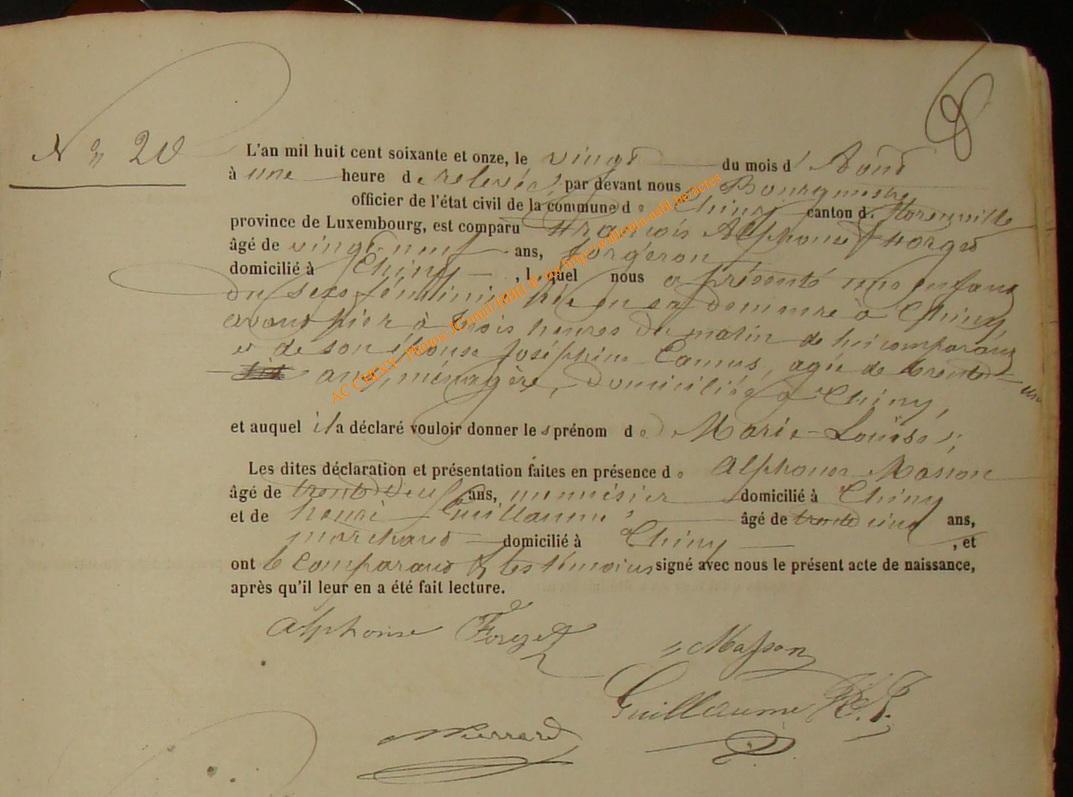 N° 20
8
L'an mil huit cent soixante et onze, le vingt du mois d' Août
à une heure de relevée, par devant nous Bourgmestre
officier de l'état civil de la commune de Chiny canton de Florenville
province de Luxembourg, est comparu François Alphonse Forget
âgé de vingt-neuf ans, forgeron
domicilié à Chiny, lequel nous a présenté un enfant
du sexe féminin, né en sa demeure à Chiny
avant hier à trois heures du matin de lui comparant
et de son épouse Joséphine Camus, agée de trente-un
ans, ménagère, domiciliée à Chiny,
et auquel il a déclaré vouloir donner les prénom de Marie-Louise;
Les dites déclaration et présentation faites en présence de Alphonse Masson
âgé de trente deux ans, menuisier domicilié à Chiny
et de henri Guillaume âgé de trente cinq ans,
marchand domicilié à Chiny, et
ont le comparant & les témoins signé avec nous le présent acte de naissance,
après qu'il leur en a été fait lecture.
Alphonse Forget Masson
Guillaume H. J.
Pierrard